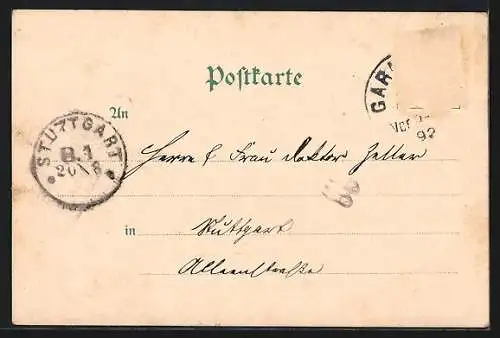 Postkarte
GAR
92
An
STUTTGART
B.3.
20 8
Herrn & Frau Doktor Zeller
in Stuttgart
Alleenstraße